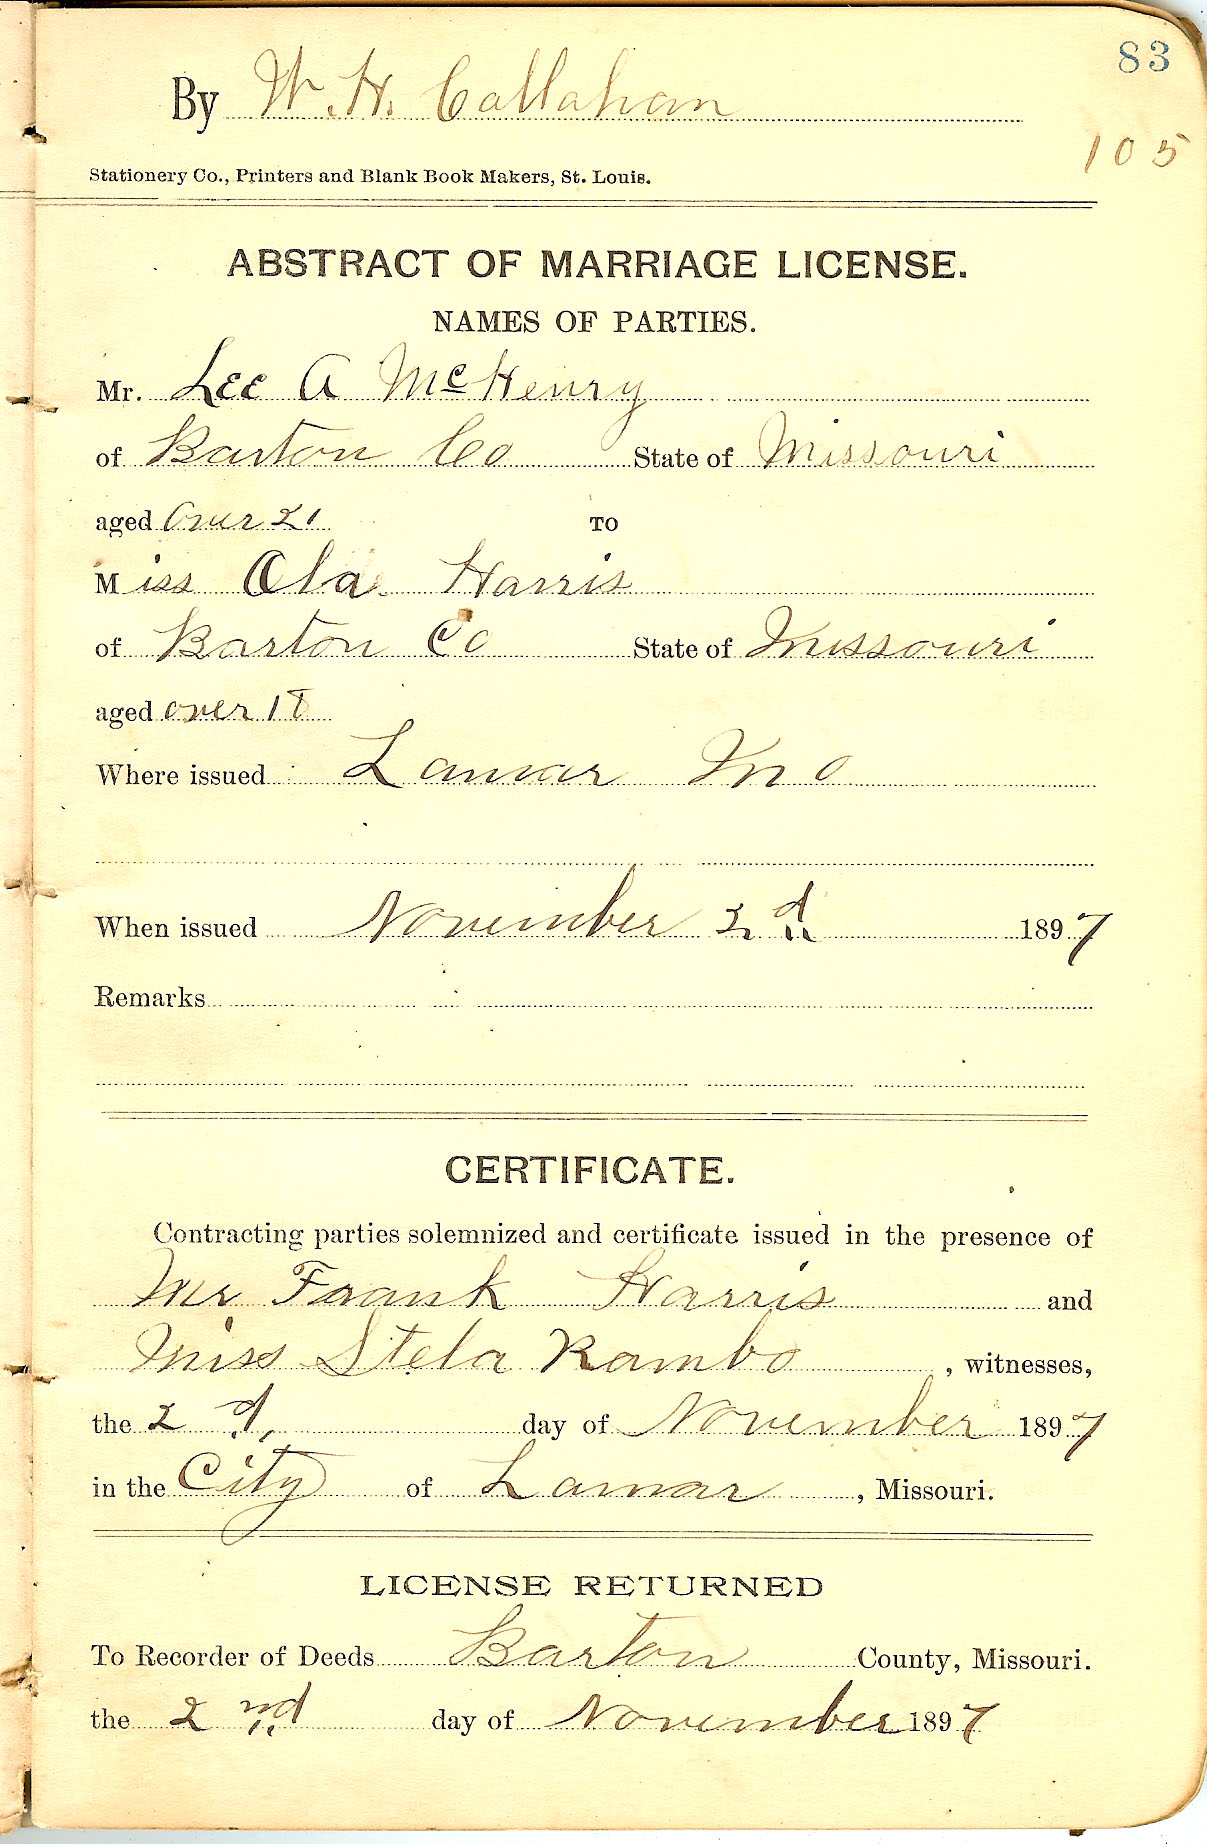 83
By W. H. Callahan
105
Stationery Co., Printers and Blank Book Makers, St. Louis.
ABSTRACT OF MARRIAGE LICENSE.
NAMES OF PARTIES.
Mr. Lee A McHenry
of Barton Co State of Missouri
aged Over 21 TO
Miss Ola Harris
of Barton Co State of Missouri
aged over 18
Where issued Lamar Mo
When issued November 2d 1897
Remarks
CERTIFICATE.
Contracting parties solemnized and certificate issued in the presence of
Mr Frank Harris and
Miss Stela Rambo, witnesses,
the 2d, day of November 1897
in the City of Lamar, Missouri.
LICENSE RETURNED
To Recorder of Deeds Barton County, Missouri.
the 2nd day of November 1897